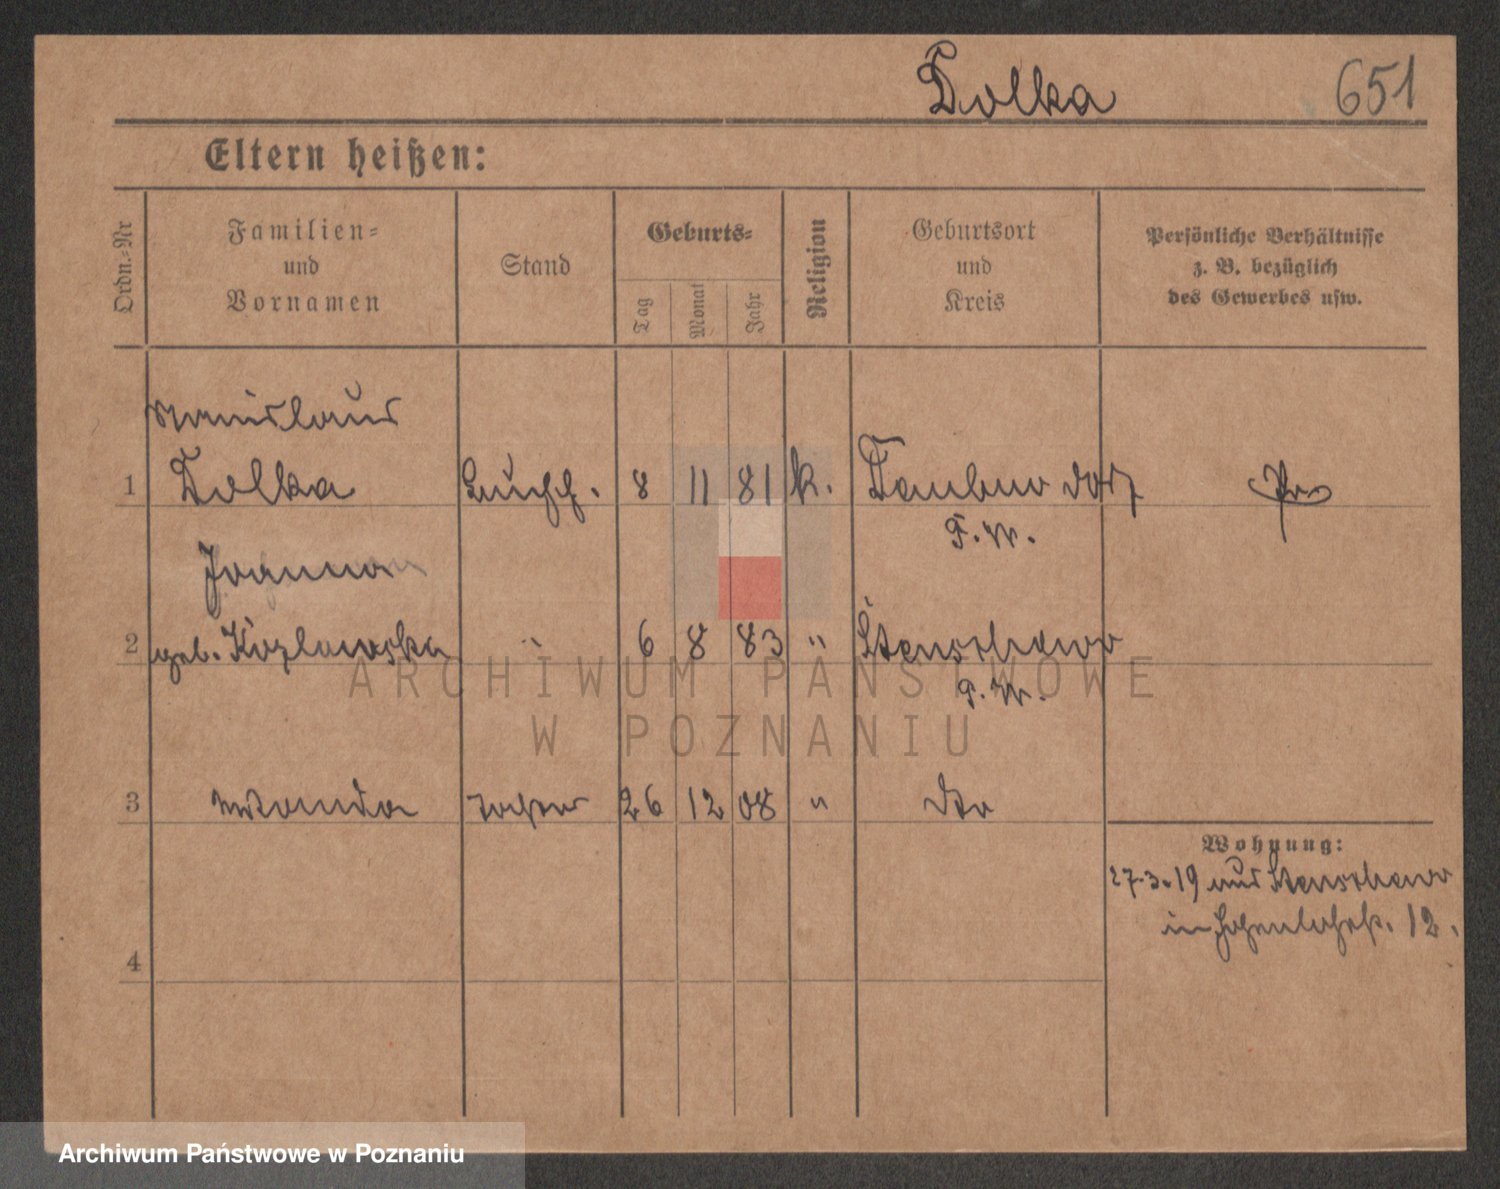 Dolka 651
Eltern heißen:
Ordn.-Nr
Familien-
und
Vornamen
Stand
Geburts-
Tag
Monat
Jahr
Religion
Geburtsort
und
Kreis
Persönliche Verhältnisse
z. B. bezüglich
des Gewerbes usw.
Stanislaus
1 Dolka 8 11 81 k.
P. W.
Joanna
2 geb. Kozlowska " 6 8 83 " Stenschewo
P. W.
3 Wanda Tochter 26 12 08 " dto
Wohnung:
27.3.19 aus Stenschewo
in Hohenlohestr. 12.
4
ARCHIWUM PAŃSTWOWE
W POZNANIU
Archiwum Państwowe w Poznaniu